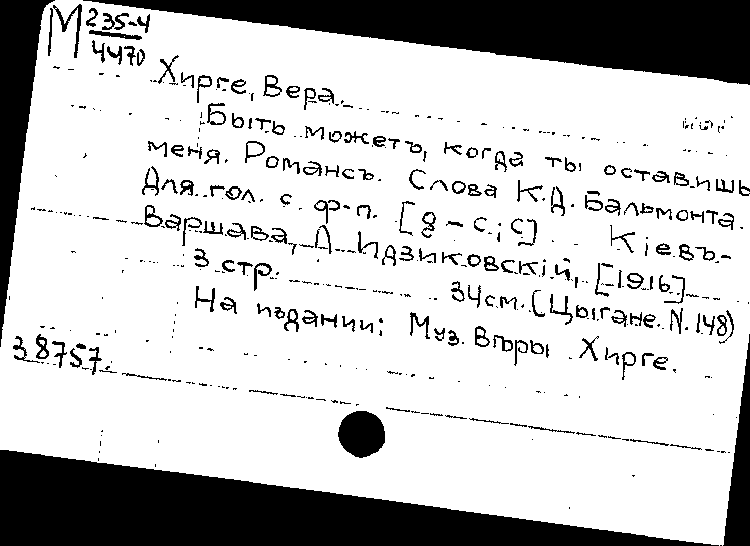 М 235-4
4470
Хирге, Вера.
Быть можетъ, когда ты оставишь
меня. Романсъ. Слова К.Д. Бальмонта.
Для гол. с ф-п. [g-c; c] Кіевъ-
Варшава, Л. Идзиковскій, [1916]
3 стр. 34 см. (Цыгане. N. 148)
На издании: Муз. Вѣры Хирге.
38757.